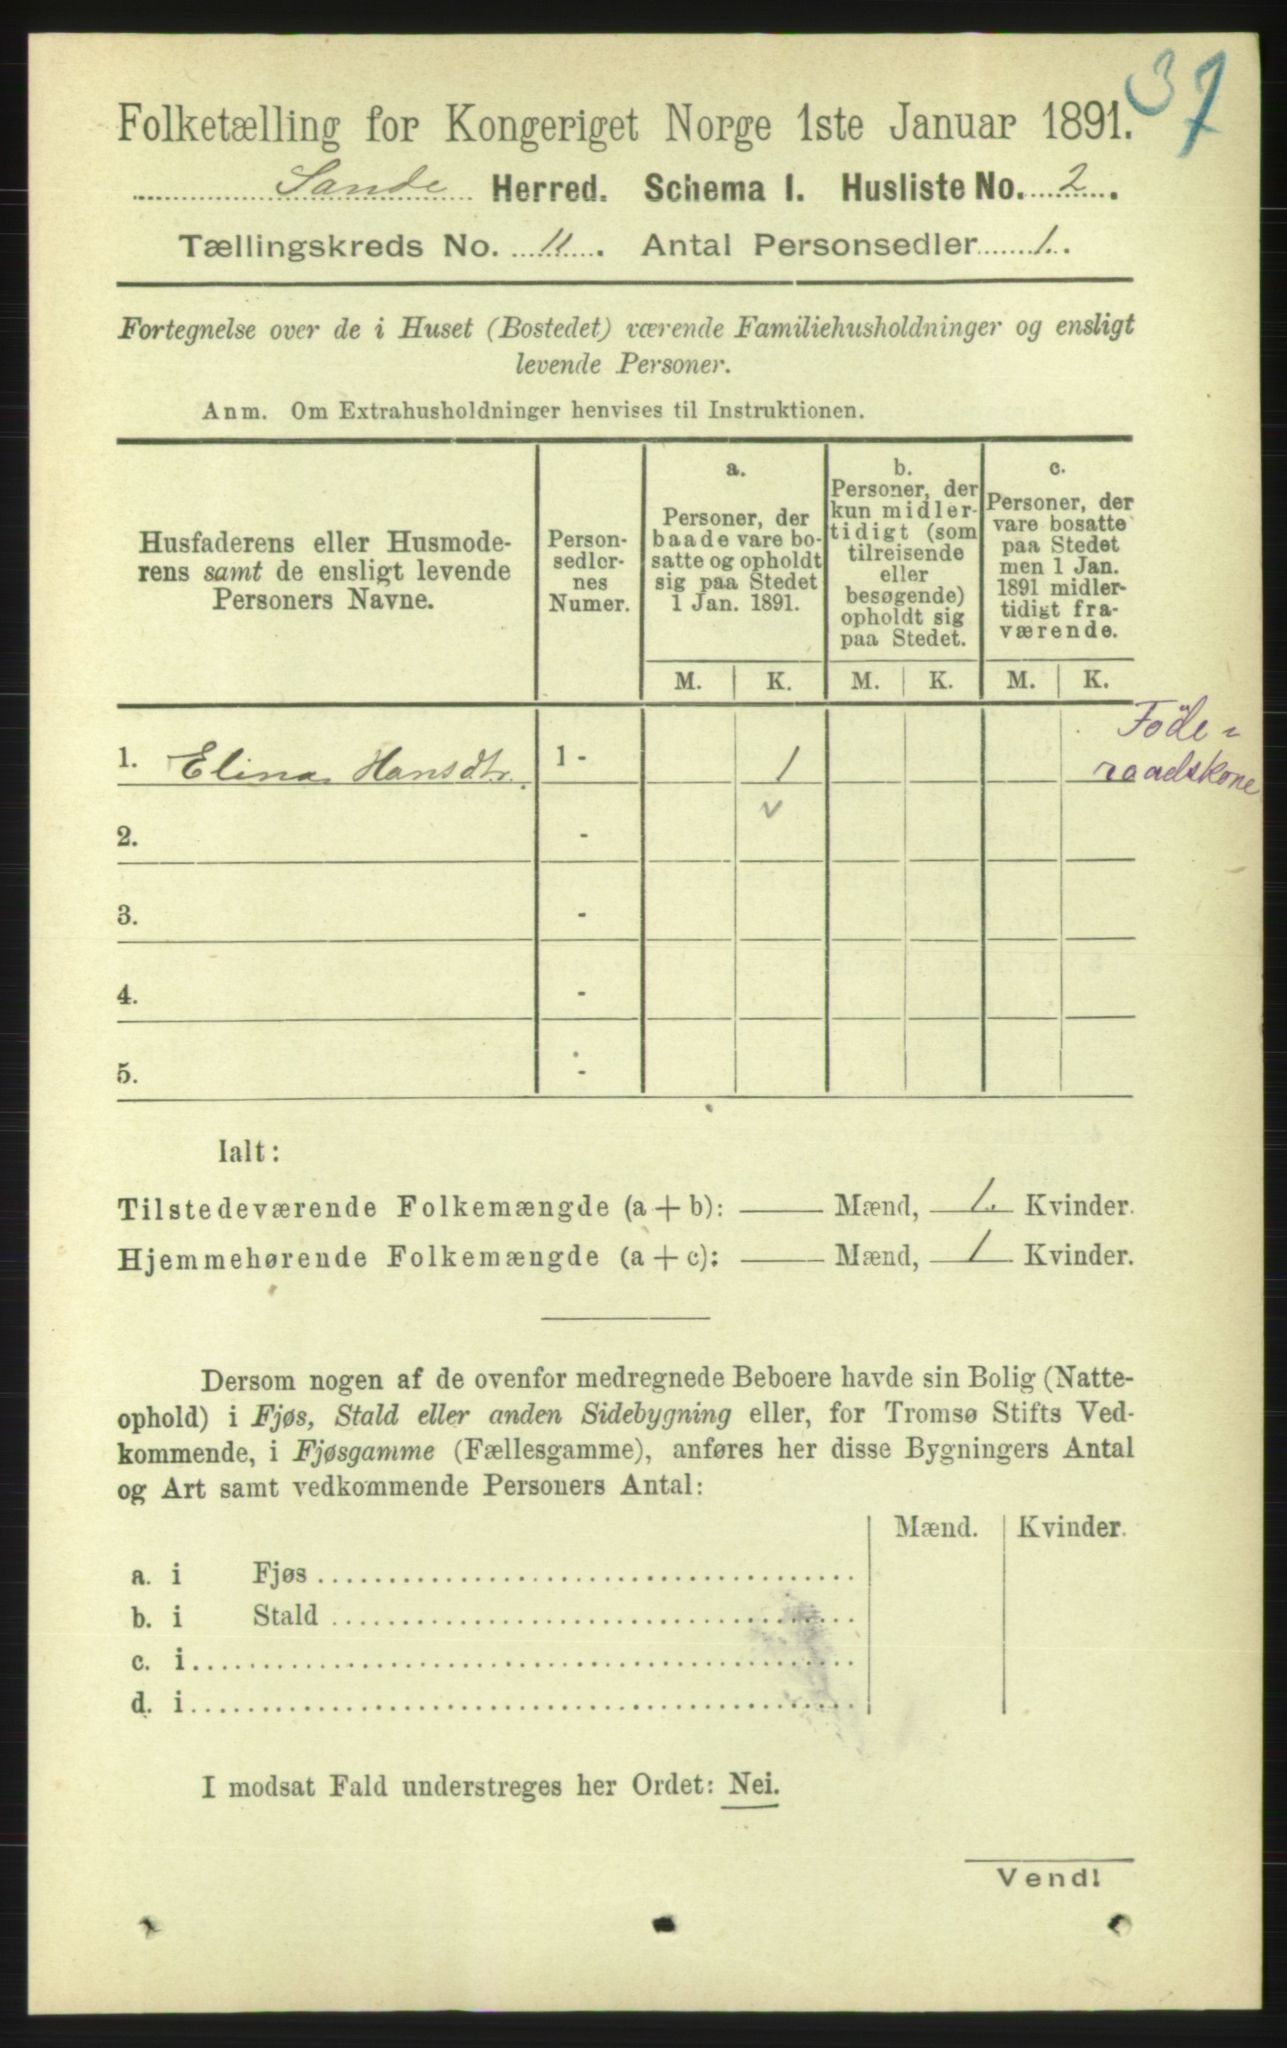 37
Folketælling for Kongeriget Norge 1ste Januar 1891.
Sande Herred. Schema I. Husliste No. 2.
Tællingskreds No. 11. Antal Personsedler 1.
Fortegnelse over de i Huset (Bostedet) værende Familiehusholdninger og ensligt
levende Personer.
Anm. Om Extrahusholdninger henvises til Instruktionen.
Husfaderens eller Husmode-
rens samt de ensligt levende
Personers Navne.
Person-
sedler-
nes
Numer.
a.
Personer, der
baade vare bo-
satte og opholdt
sig paa Stedet
1 Jan. 1891.
b.
Personer, der
kun midler-
tidigt (som
tilreisende
eller
besøgende)
opholdt sig
paa Stedet.
c.
Personer, der
vare bosatte
paa Stedet
men 1 Jan.
1891 midler-
tidigt fra-
værende.
M. K. M. K. M. K.
Föde-
raadskone
1. Elina Hansdtr. 1 - 1
2. -
3. -
4. -
5. -
Ialt:
Tilstedeværende Folkemængde (a + b): — Mænd, 1. Kvinder.
Hjemmehørende Folkemængde (a + c): — Mænd, 1 Kvinder.
Dersom nogen af de ovenfor medregnede Beboere havde sin Bolig (Natte-
ophold) i Fjøs, Stald eller anden Sidebygning eller, for Tromsø Stifts Ved-
kommende, i Fjøsgamme (Fællesgamme), anføres her disse Bygningers Antal
og Art samt vedkommende Personers Antal:
Mænd. Kvinder.
a. i Fjøs
b. i Stald
c. i
d. i
I modsat Fald understreges her Ordet: Nei.
Vend!